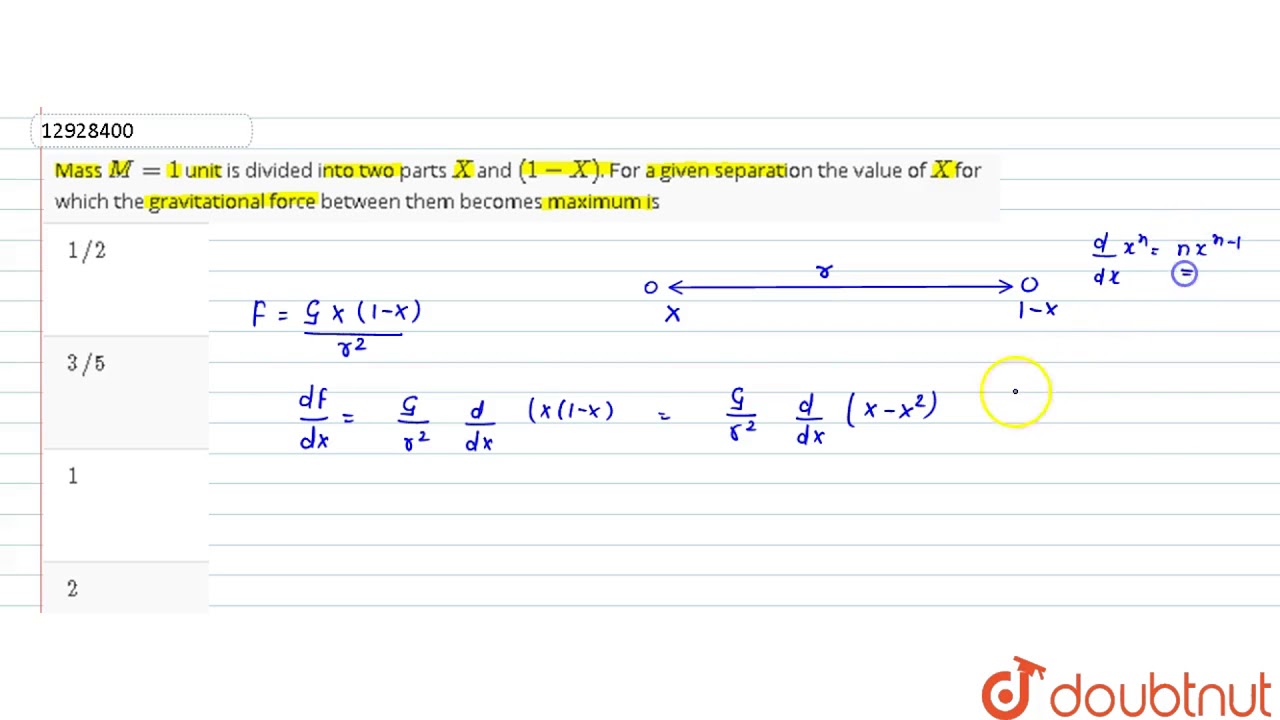 12928400
Mass M = 1 unit is divided into two parts X and (1 − X). For a given separation the value of X for
which the gravitational force between them becomes maximum is
1/2
3/5
1
2
d/dx x^n = n x^(n-1)
=
r
X
1-x
F = G x (1-x) / r^2
df/dx = G/r^2 d/dx (x(1-x) = G/r^2 d/dx (x - x^2)
doubtnut